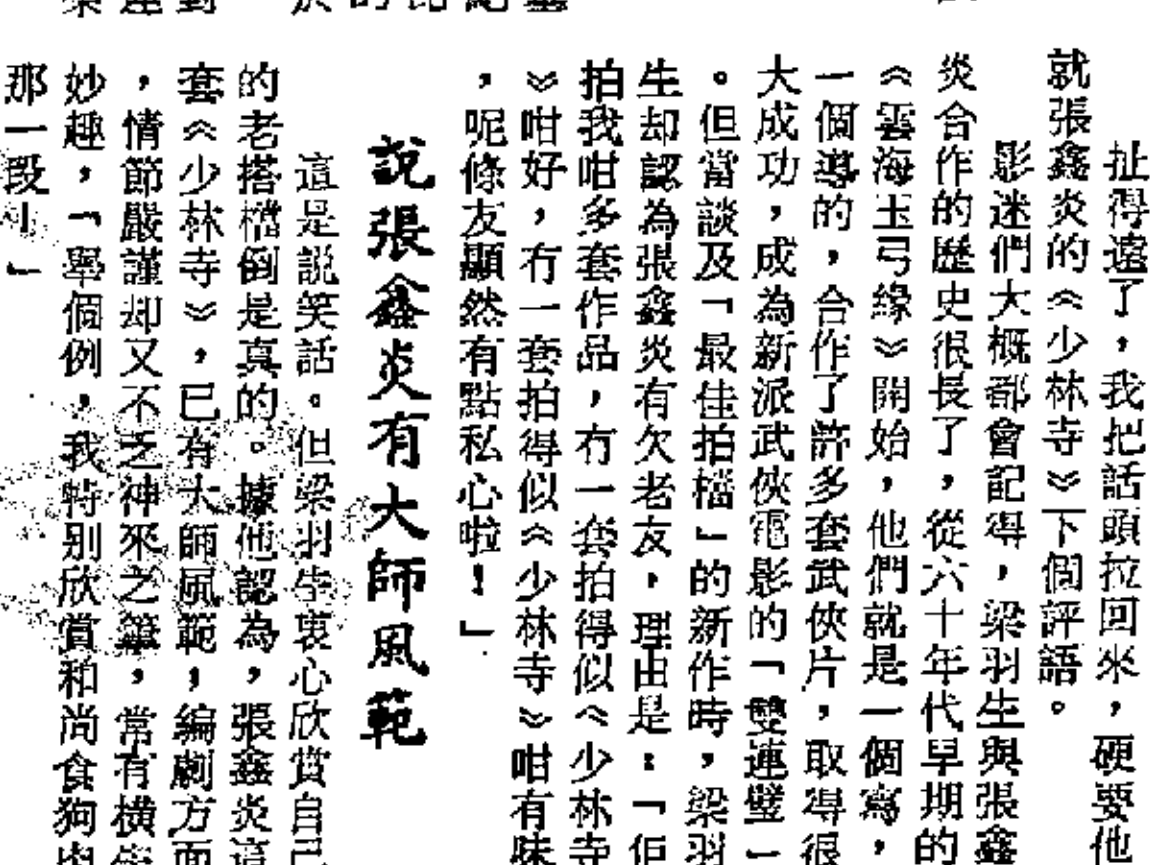 扯得遠了，我把話頭拉回來，硬要他
就張鑫炎的《少林寺》下個評語。
影迷們大概都會記得，梁羽生與張鑫
炎合作的歷史很長了，從六十年代早期的
《雲海玉弓緣》開始，他們就是一個寫，
一個導的，合作了許多套武俠片，取得很
大成功，成為新派武俠電影的「雙連璧」
。但當談及「最佳拍檔」的新作時，梁羽
生却認為張鑫炎有欠老友，理由是：「佢
拍我咁多套作品，冇一套拍得似《少林寺
》咁好，冇一套拍得似《少林寺》咁有味
，呢條友顯然有點私心啦！」
說張鑫炎有大師風範
這是説笑話。但梁羽生衷心欣賞自己
的老搭檔倒是真的。據他認為，張鑫炎這
套《少林寺》，已有大師風範，編劇方面
，情節嚴謹却又不乏神來之筆，常有橫生
妙趣，「舉個例，我特别欣賞和尚食狗肉
那一段！」